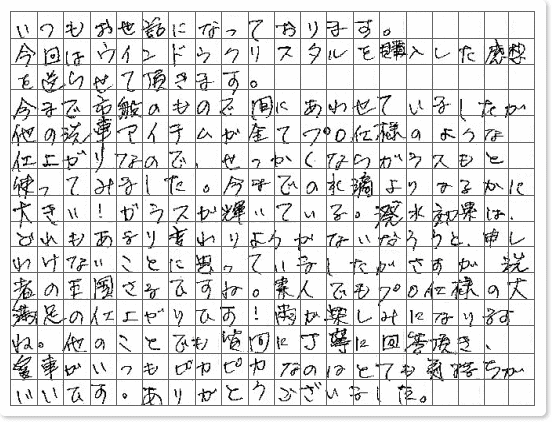 いつもお世話になっております。
今回はウインドウクリスタルを購入した感想
を送らせて頂きます。
今まで市販のもので間にあわせていましたが
他の洗車アイテムが全てプロ仕様のような
仕上がりなので、せっかくならガラスもと
使ってみました。今までの水滴よりはるかに
大きい!ガラスが輝いている。撥水効果は、
どれもあまり変わりようがないだろうと、申し
わけないことに思っていましたがさすが 洗
車の王国さまですね。素人でもプロ仕様の大
満足の仕上がりです!雨が楽しみになります
ね。他のことでも質問に丁寧に回答頂き、
愛車がいつもピカピカなのはとても気持ちが
いいです。ありがとうございました。